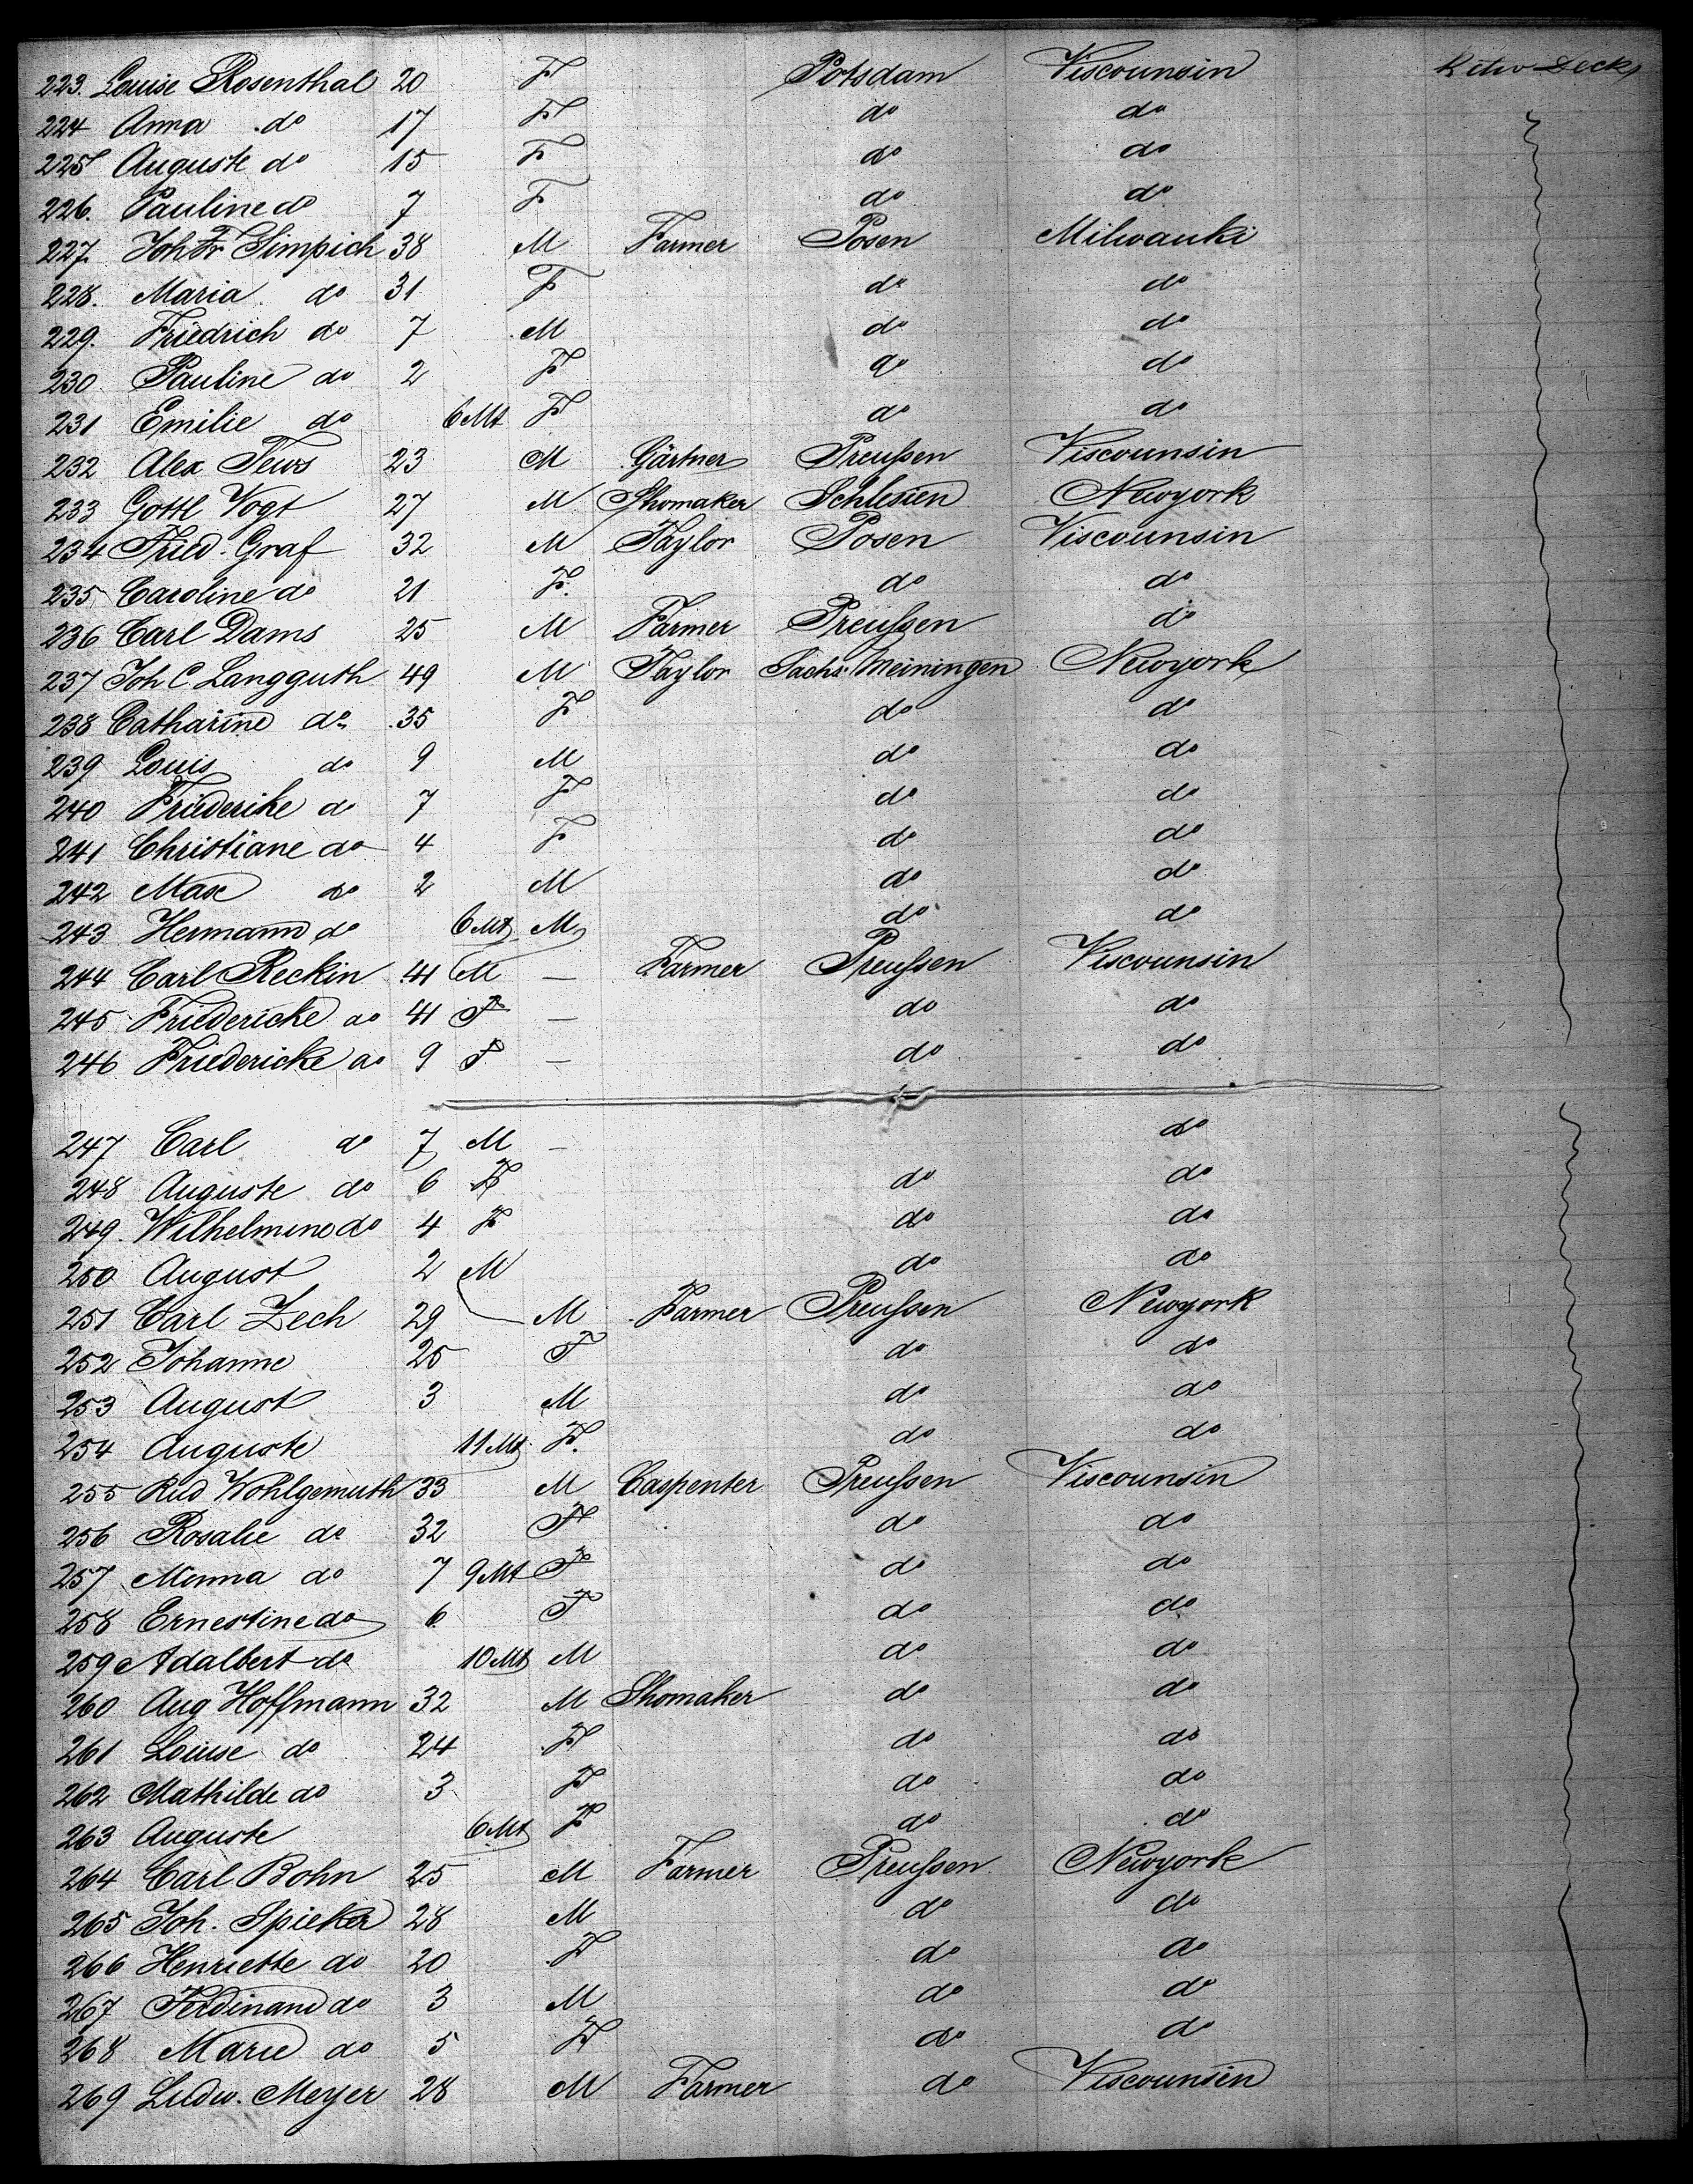 223. Louise Rosenthal 20 F Potsdam Viscounsin Deck
224 Anna do 17 F do do
225 Auguste do 15 F do do
226. Pauline do 7 F do do
227. Joh Fr Simpich 38 M Farmer Posen Milwauki
228. Maria do 31 F do do
229. Friedrich do 7 M do do
230 Pauline do 2 F do do
231 Emilie do 6 Mt F do do
232 Alex Tews 23 M Gärtner Preußen Viscounsin
233 Gottl Vogt 27 M Shomaker Schlesien Newyork
234 Fried. Graf 32 M Taylor Posen Viscounsin
235 Caroline do 21 F. do do
236 Carl Dams 25 M Farmer Preußen do
237 Joh C Langguth 49 M Taylor Sachs. Meiningen Newyork
238 Catharine do 35 F do do
239 Louis do 9 M do do
240 Friederike do 7 F do do
241 Christiane do 4 F do do
242 Max do 2 M do do
243 Hermann do 6 Mt M do do
244 Carl Reckin 41 M — Farmer Preußen Viscounsin
245 Friedericke do 41 F — do do
246 Friedericke do 9 F — do do
247 Carl do 7 M — do
248 Auguste do 6 F do do
249. Wilhelmine do 4 F do do
250 August 2 M do do
251 Carl Zech 29 M Farmer Preußen Newyork
252 Johanne 25 F do do
253 August 3 M do do
254 Auguste 11 Mt F. do do
255 Rud Wohlgemuth 33 M Carpenter Preußen Viscounsin
256 Rosalie do 32 F do do
257 Minna do 7 9 Mt F do do
258 Ernestine do 6 F do do
259 Adalbert do 10 Mt M do do
260 Aug Hoffmann 32 M Shomaker do do
261 Louise do 24 F do do
262 Mathilde do 3 F do do
263 Auguste 6 Mt F do do
264 Carl Bohn 25 M Farmer Preußen Newyork
265 Joh. Spieker 28 M do do
266 Henriette do 20 F do do
267 Ferdinand do 3 M do do
268 Marie do 5 F do do
269 Ludw. Meyer 28 M Farmer do Viscounsin